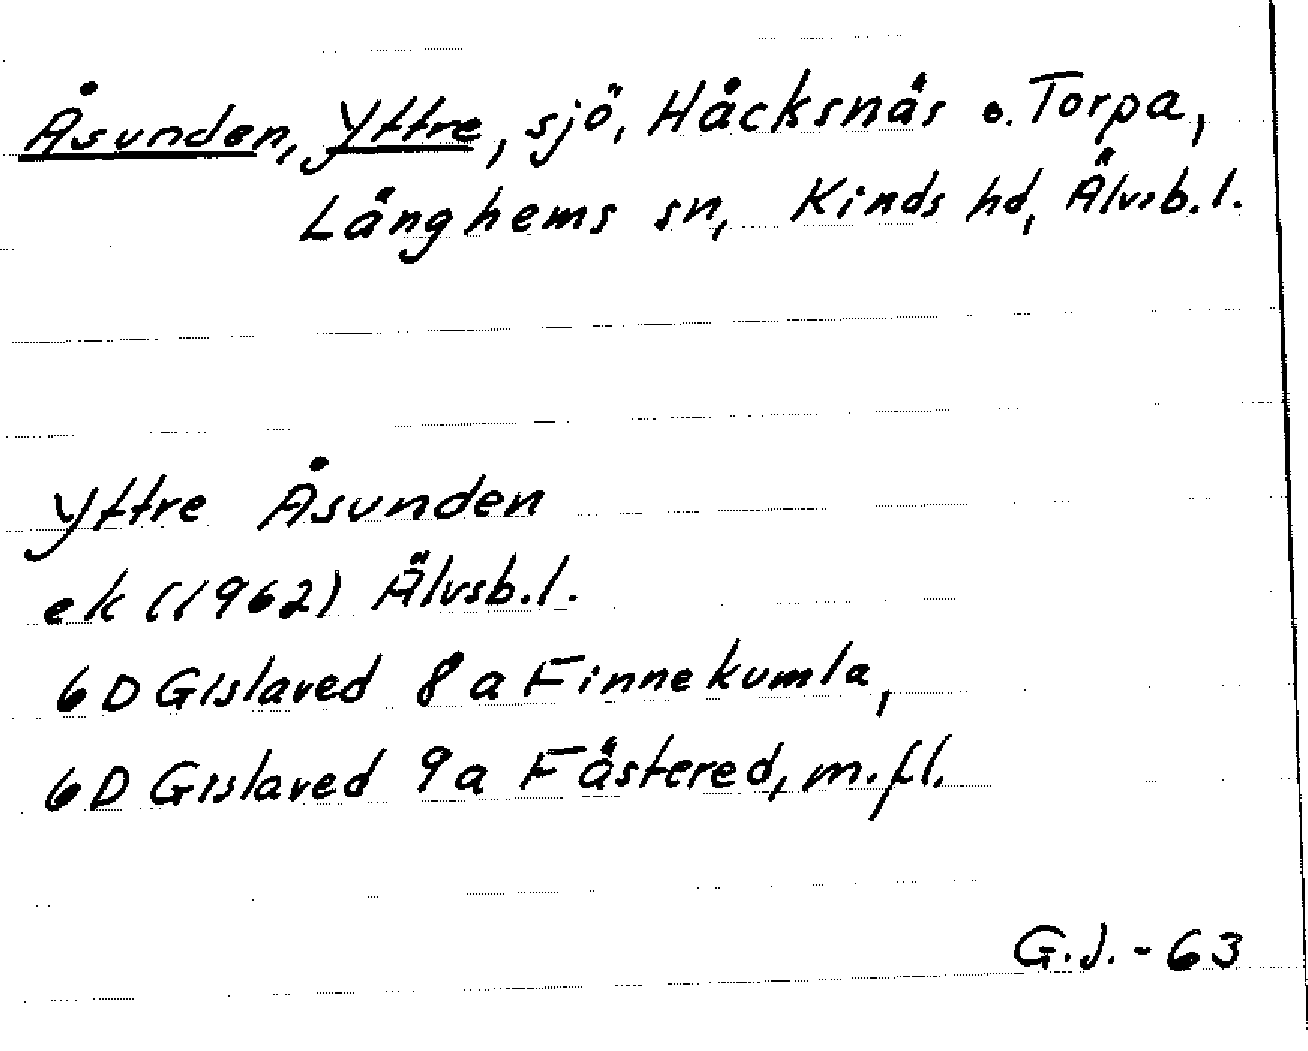 Åsunden, Yttre, sjö, Häcksnäs o. Torpa,
Länghems sn, Kinds hd, Älvsb.l.
Yttre Åsunden
ek (1962) Älvsb.l.
6D Gislaved 8a Finnekumla,
6D Gislaved 9a Fästered, m.fl.
G.J.-63